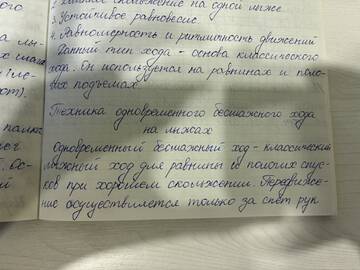 ого
2. Хатное скольжение на одной лыже
3. Устойчивое равновесие
4. Равномерность и ритмитность движений
Данный тип хода - основа классического
хода. Он используется на равнинах и поло-
гих подъемах.
Техника одновременного бесшажного хода
на лыжах
Одновременный бесшажный ход - классический
лыжный ход для равнины и пологих спус-
ков при хорошем скольжении. Передвиже-
ние осуществляется только за счёт рук